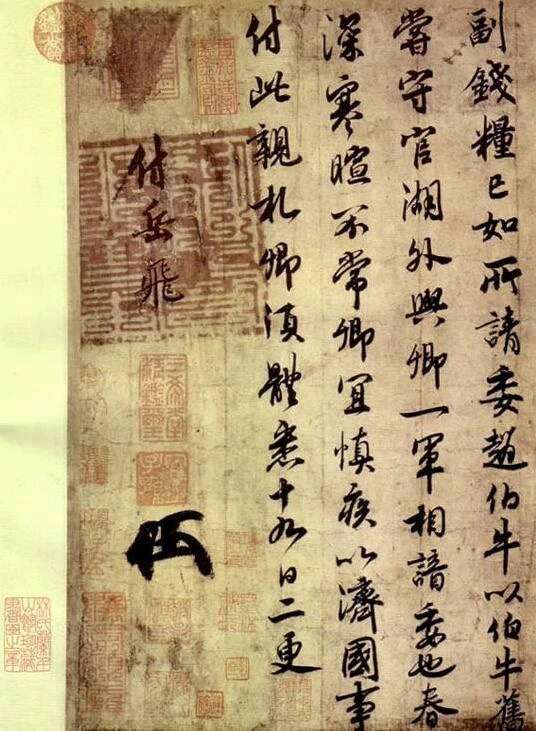 副錢糧已如所請委趙伯牛以伯牛舊
嘗守官湖外與卿一軍相諳委也春
深寒暄不常卿宜慎疾以濟國事
付此親札卿須體悉十九日二更
付岳飛
三希堂
精鑑璽
宜子孫